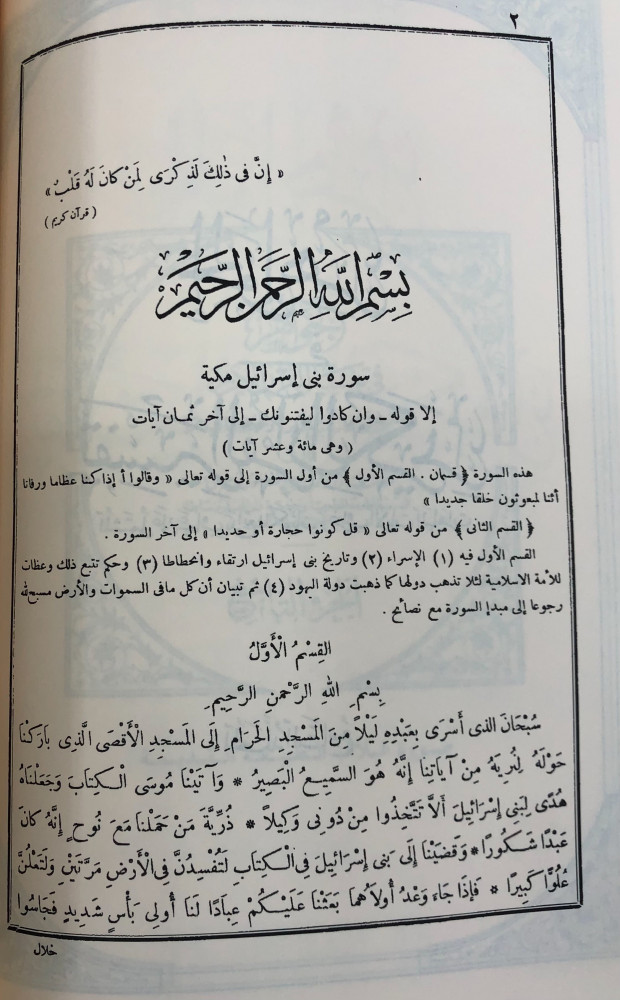 ٢
« إِنَّ فى ذٰلِكَ لَذِكْرَى لِمَنْ كانَ لَهُ قَلْبٌ »
( قرآن كريم )
بِسْمِ اللهِ الرَّحْمٰنِ الرَّحِيمِ
سورة بنى إسرائيل مكية
إلا قوله ـ وان كادوا ليفتنونك ـ إلى آخر ثمـان آيات
( وهى مائة وعشر آيات )
هذه السورة ﴿ قسمان . القسم الأول ﴾ من أول السورة إلى قوله تعالى « وقالوا أ إذا كنا عظاما ورفاتا
أئنا لمبعوثون خلقا جديدا »
﴿ القسم الثانى ﴾ من قوله تعالى « قل كونوا حجارة أو حديدا » إلى آخر السورة .
القسم الأول فيه (١) الإسراء (٢) وتاريخ بنى إسرائيل ارتقاء وانحطاطا (٣) وحكم تتبع ذلك وعظات
للأمة الاسلامية لئلا تذهب دولها كما ذهبت دولة اليهود (٤) ثم تبيان أن كل مافى السموات والأرض مسبح لله
رجوعا إلى مبدإ السورة مع نصائح .
القِسْمُ الْأَوَّلُ
بِسْمِ اللهِ الرَّحْمٰنِ الرَّحِيمِ
سُبْحَانَ الذى أَسْرَى بِعَبْدِهِ لَيْلًا مِنَ المَسْجِدِ الحَرَامِ إِلَى المَسْجِدِ الْأَقْصَى الَّذِى بارَكْنَا
حَوْلَهُ لِنُرِيَهُ مِنْ آيَاتِنَا إِنَّهُ هُوَ السَّمِيعُ الْبَصِيرُ * وَآتَيْنَا مُوسَى الْكِتَابَ وَجَعَلْنَاهُ
هُدًى لِبَنِى إِسْرَائِيلَ أَلَّا تَتَّخِذُوا مِنْ دُونِى وَكِيلًا * ذُرِّيَّةَ مَنْ حَمَلْنَا مَعَ نُوحٍ إِنَّهُ كانَ
عَبْدًا شَكُورًا * وَقَضَيْنَا إِلَى بَنِى إِسْرَائِيلَ فِى الْكِتَابِ لَتُفْسِدُنَّ فِى الْأَرْضِ مَرَّتَيْنِ وَلَتَعْلُنَّ
عُلُوًّا كَبِيرًا * فَإِذَا جَاءَ وَعْدُ أُولَاهُمَا بَعَثْنَا عَلَيْكُمْ عِبَادًا لَنَا أُولِى بَأْسٍ شَدِيدٍ فَجَاسُوا
خلال